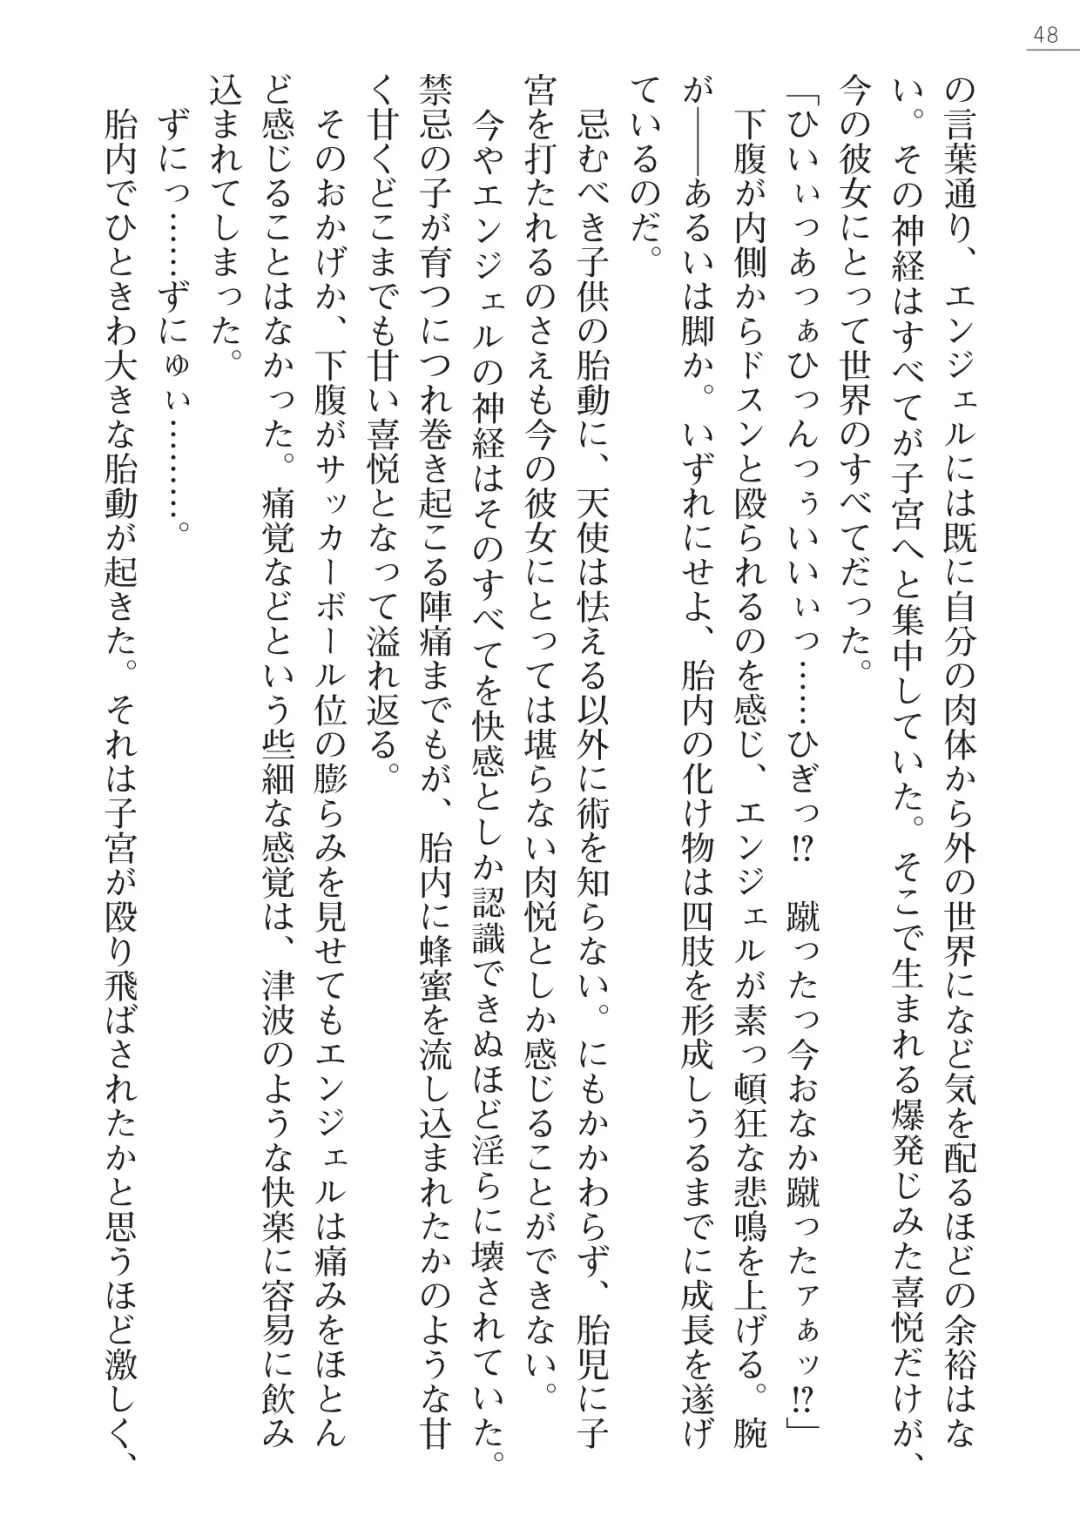 48
の言葉通り、エンジェルには既に自分の肉体から外の世界になど気を配るほどの余裕はな
い。その神経はすべてが子宮へと集中していた。そこで生まれる爆発じみた喜悦だけが、
今の彼女にとって世界のすべてだった。
「ひいぃっあっぁひっんっぅいいぃっ……ひぎっ!?　蹴ったっ今おなか蹴ったァぁッ!?」
　下腹が内側からドスンと殴られるのを感じ、エンジェルが素っ頓狂な悲鳴を上げる。腕
が――あるいは脚か。いずれにせよ、胎内の化け物は四肢を形成しうるまでに成長を遂げ
ているのだ。
　忌むべき子供の胎動に、天使は怯える以外に術を知らない。にもかかわらず、胎児に子
宮を打たれるのさえも今の彼女にとっては堪らない肉悦としか感じることができない。
　今やエンジェルの神経はそのすべてを快感としか認識できぬほど淫らに壊されていた。
禁忌の子が育つにつれ巻き起こる陣痛までもが、胎内に蜂蜜を流し込まれたかのような甘
く甘くどこまでも甘い喜悦となって溢れ返る。
　そのおかげか、下腹がサッカーボール位の膨らみを見せてもエンジェルは痛みをほとん
ど感じることはなかった。痛覚などという些細な感覚は、津波のような快楽に容易に飲み
込まれてしまった。
　ずにっ……ずにゅぃ………。
　胎内でひときわ大きな胎動が起きた。それは子宮が殴り飛ばされたかと思うほど激しく、